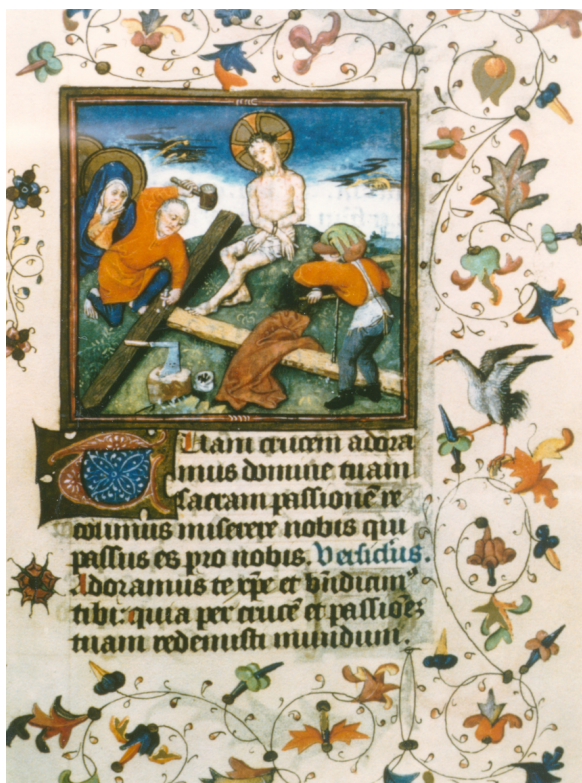 Tuam crucem adora
mus domine tuam
sacram passionē re
colimus miserere nobis qui
passus es pro nobis. Versiclus.
Adoramus te xp̄e et bn̄dicim᷒
tibi: quia per crucē et passionē
tuam redemisti mundum.